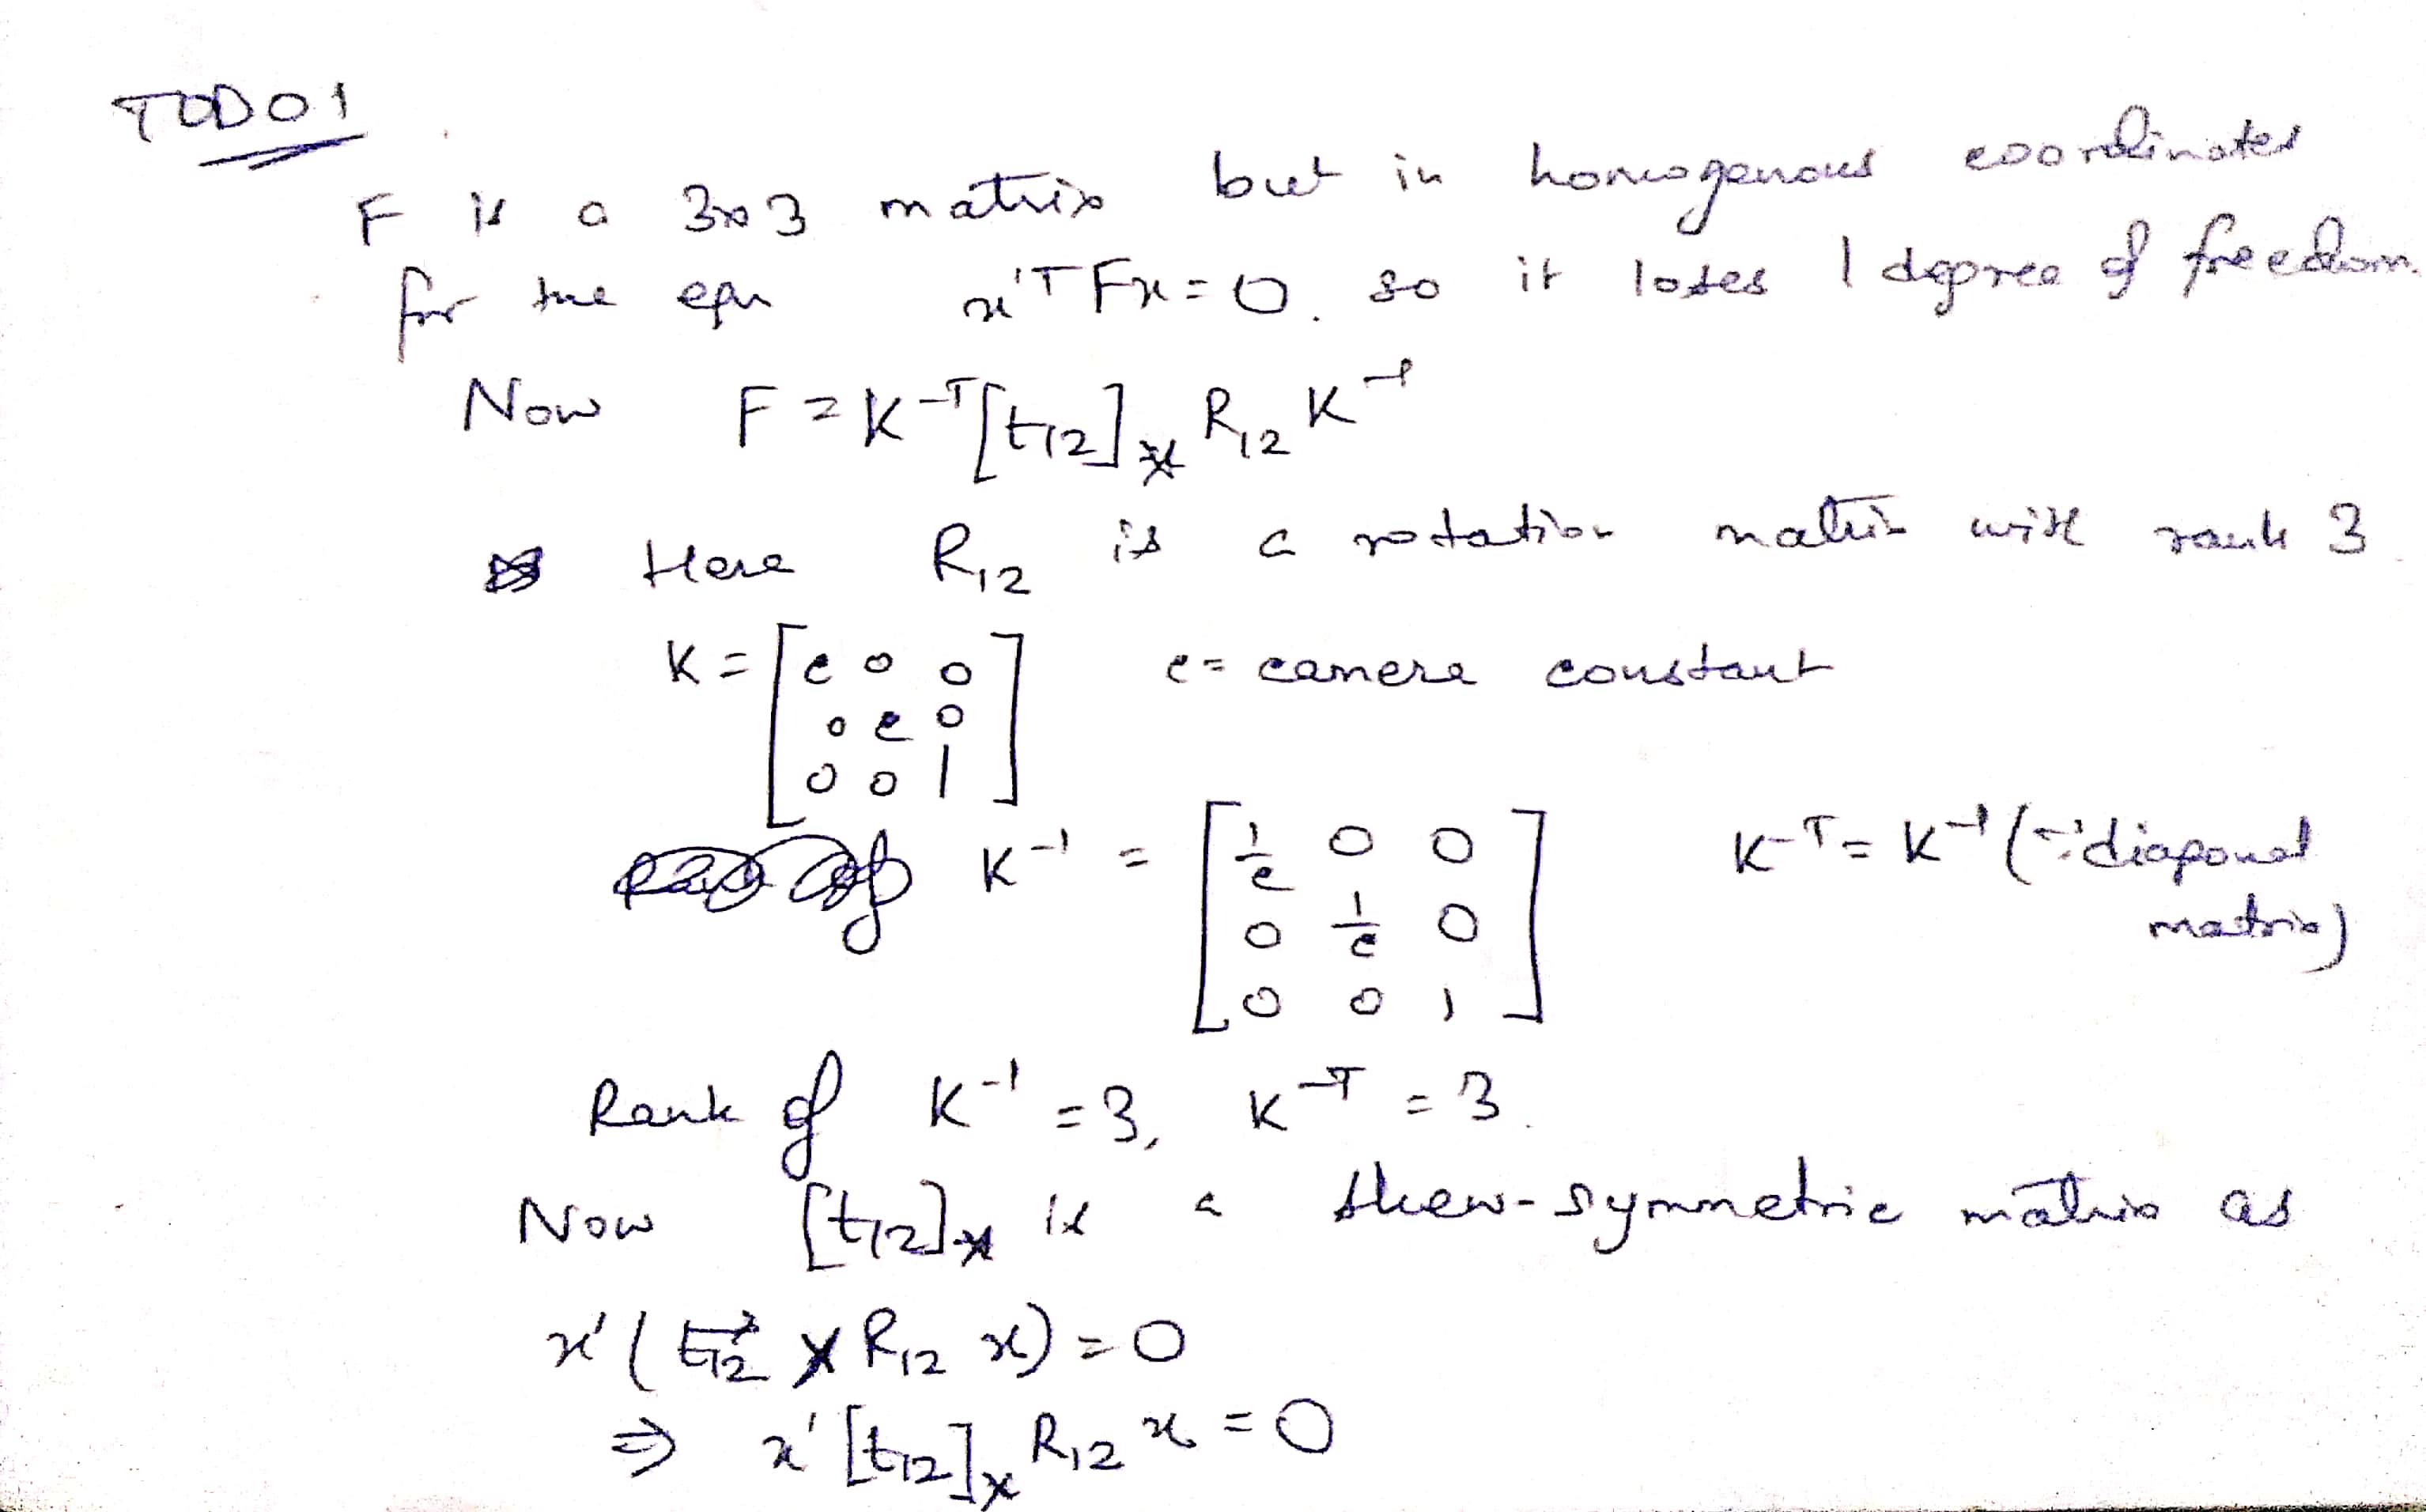 TODO1
F is a 3x3 matrix but in homogenous coordinates
for the eqn x'ᵀFx = 0. so it loses 1 degree of freedom.
Now F = K⁻ᵀ[t₁₂]ₓ R₁₂ K⁻¹
Here R₁₂ is a rotation matrix with rank 3.
K = [c 0 0; 0 c 0; 0 0 1] c = camera constant
K⁻¹ = [1/c 0 0; 0 1/c 0; 0 0 1] K⁻ᵀ = K⁻¹ (∵ diagonal matrix)
Rank of K⁻¹ = 3, K⁻ᵀ = 3.
Now [t₁₂]ₓ is a skew-symmetric matrix as
x'(t₁₂ × R₁₂ x) = 0
⇒ x' [t₁₂]ₓ R₁₂ x = 0